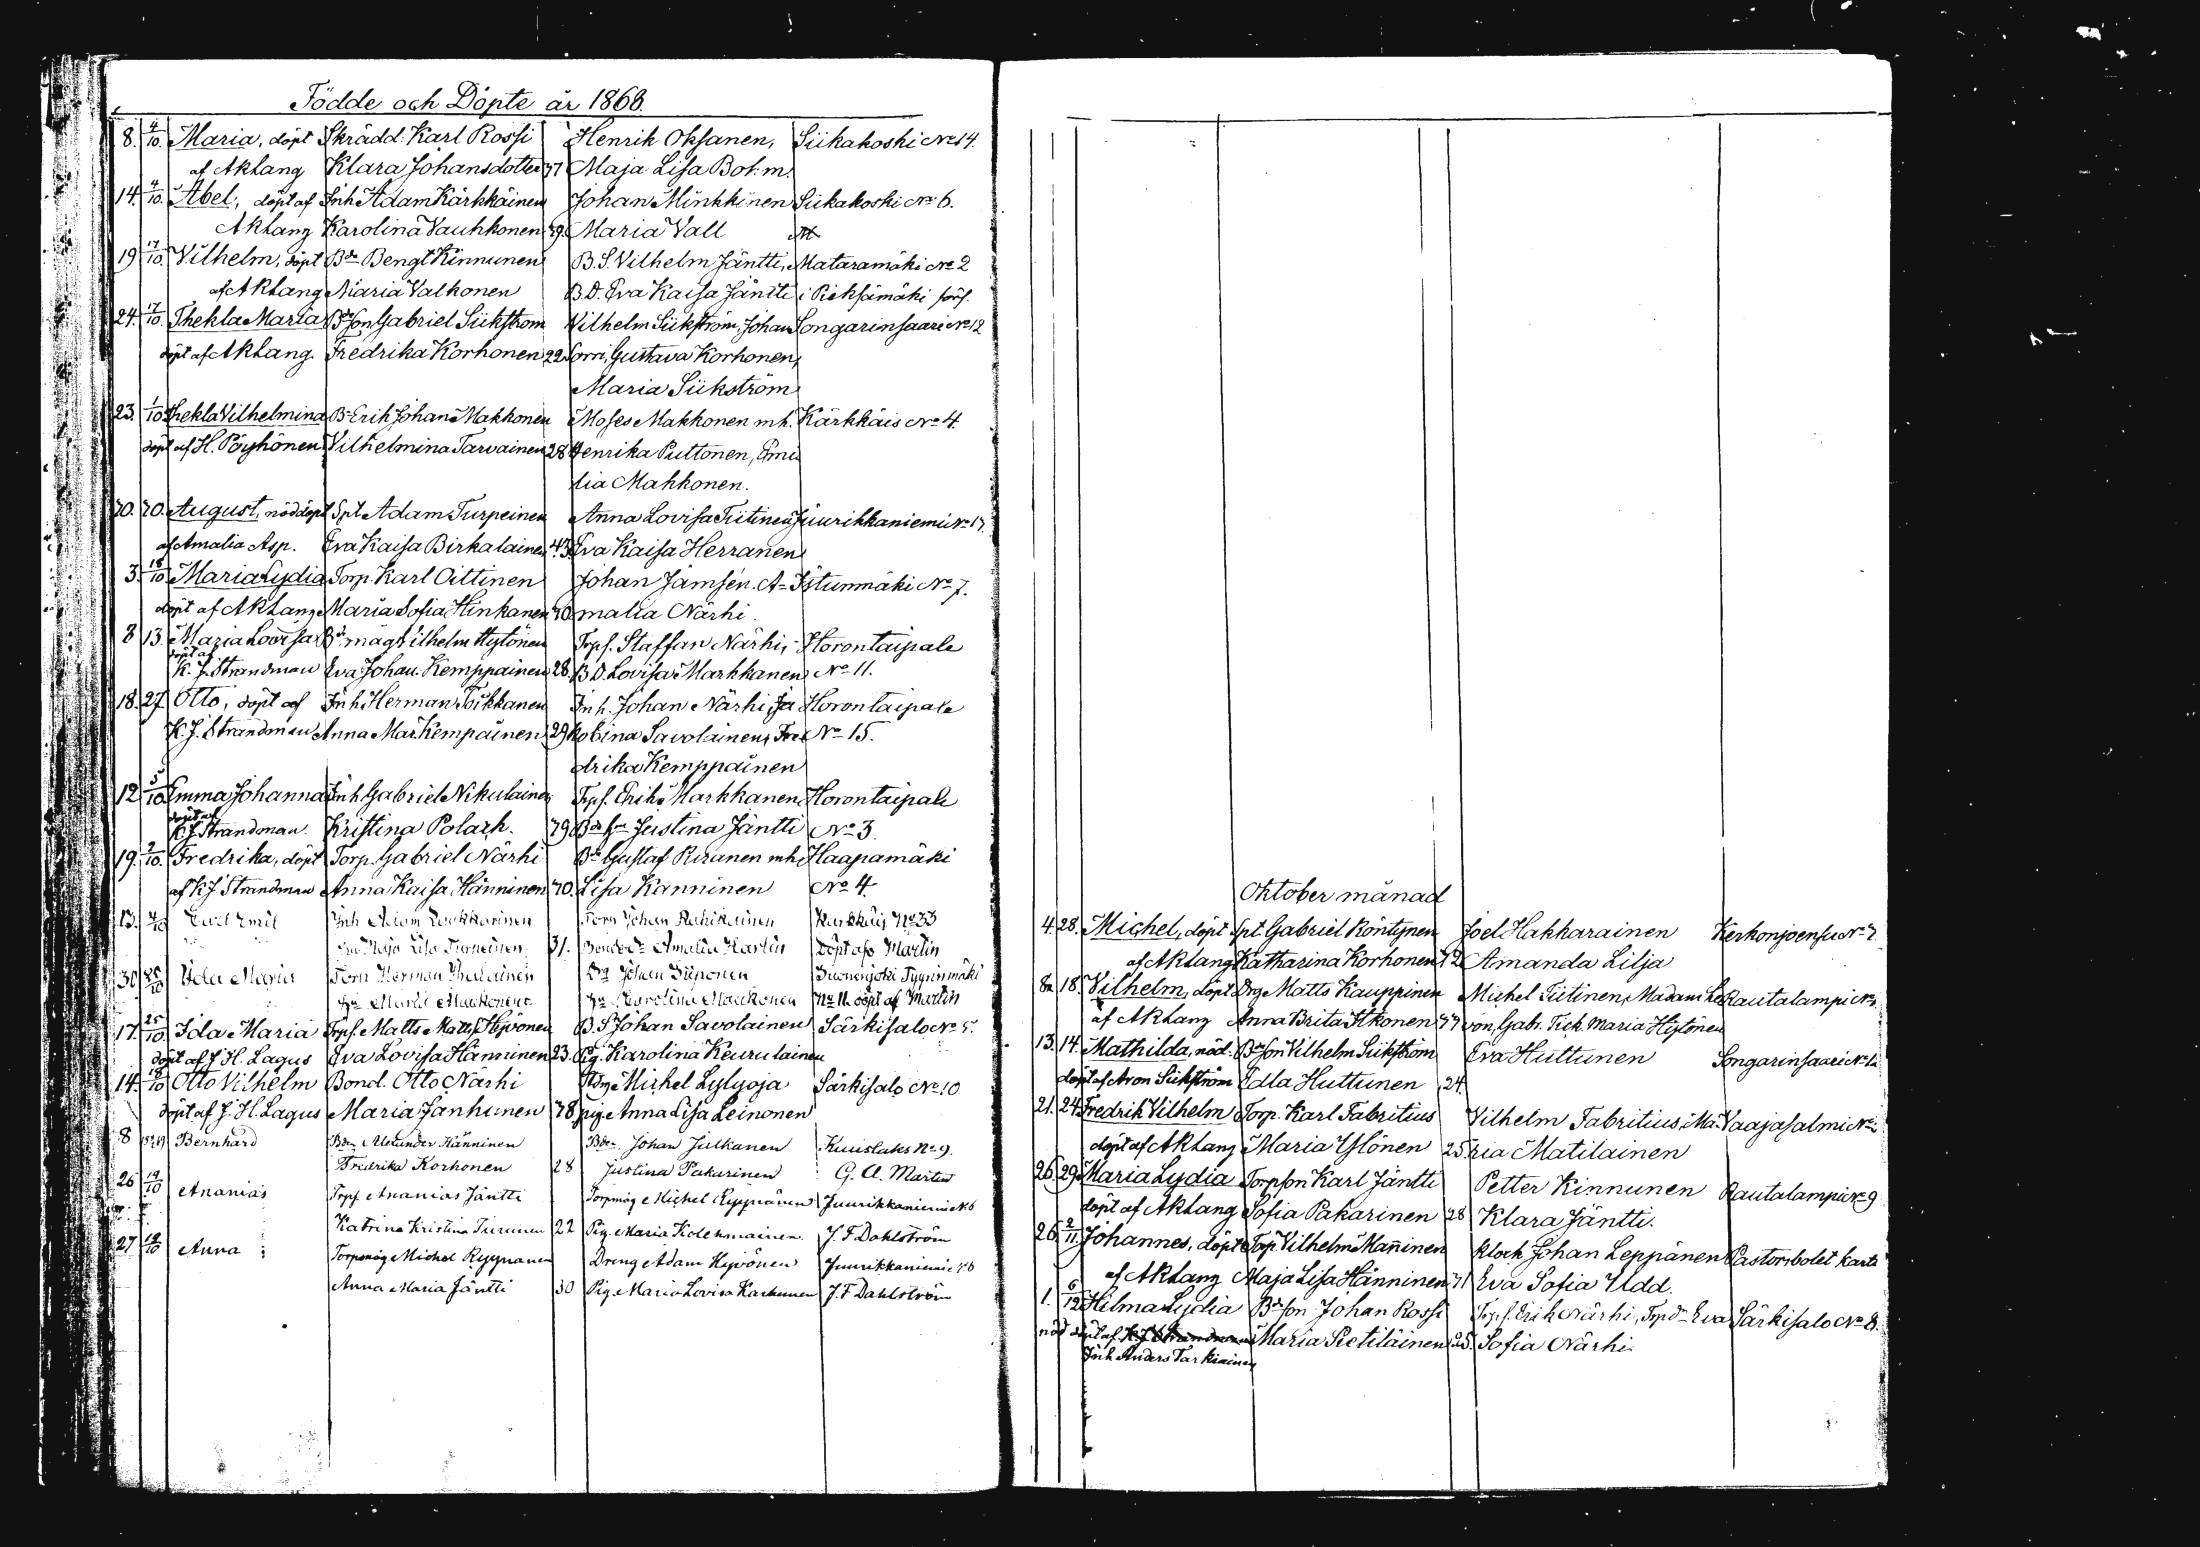 Födde och Döpte år 1868.
8. 4/10. Maria, döpt Skrädd. Karl Rossi Henrik Oksanen, Siikakoski No 14.
af Aklang Klara Johansdotter 37 Maja Lisa Bot.m.
14. 4/10. Abel, döpt af Inh Adam Kärkkäinen Johan Minkkinen Siikakoski No 6.
Aklang Karolina Vauhkonen 39. Maria Vall
19 17/10. Vilhelm, döpt Bde Bengt Kinnunen B.S. Vilhelm Jäntti, Mataramäki No 2
af Aklang Maria Valkonen B.D. Eva Kaisa Jäntti i Pieksämäki förs.
24. 17/10. Thekla Maria Bdeson Gabriel Siikström Vilhelm Siikström, Johan Songarinsaari No 12
döpt af Aklang. Fredrika Korhonen 22 Sorri, Gustava Korhonen,
Maria Siikström
23. 1/10 Thekla Vilhelmina B. Erik Johan Makkonen Moses Makkonen mh. Kärkkäis No 4.
döpt af H. Pöyhönen Vilhelmina Tarvainen 28 Henrika Puttonen, Emi
lia Makkonen.
20. 20. August, nöddöpt Spt Adam Turpeinen Anna Lovisa Tiitinen Juurikkaniemi No 17.
af Amalia Asp. Eva Kaisa Birkalainen 43. Eva Kaisa Herranen
3. 18/10 Maria Lydia Torp. Karl Oittinen Johan Jämsén. A- Istunmäki No 7.
döpt af Aklang Maria Sofia Hinkanen 40 malia Närhi.
8 13. Maria Lovisa Bdemåg Vilhelm Hytönen Trps. Staffan Närhi, Horontaipale
döpt af K. J. Strandman Eva Johan. Kemppainen 28. B.D. Lovisa Markkanen No 11.
18. 27. Otto, döpt af Inh. Herman Toikkanen Inh. Johan Närhi, Ja Horontaipale
K. J. Strandman Anna Mar. Kempainen 29 kobina Savolainen, Fre No 15.
drika Kemppainen
12 5/10 Emma Johanna Inh. Gabriel Nikulainen Trps. Erik Markkanen Horontaipale
döpt af K J Strandman. Kristina Polack. 39 Justina Jäntti No 3.
19. 2/10. Fredrika, döpt Torp. Gabriel Närhi Bde Gustaf Piiranen mh. Haapamäki
af K J Strandman Anna Kaisa Hänninen 40. Lisa Kanninen No 4
13. Carl Emil Inh Adam Torp Johan Kärkkäis No 33
Maja Lisa Turpeinen 31. Amalia Martin Döpt afs Martin
30 25/10 Ida Maria Torp Herman Johan Suonenjoki Tyyrinmäki
Maria Maukonen Karolina Maukonen No 11. döpt af Martin
17. 25/10. Ida Maria Trps. Matts Mattss Hyvönen B.S Johan Savolainen Särkisalo No 5.
döpt af J. H. Lagus Eva Lovisa Hänninen 23. Pig. Karolina Keurulainen
14. 18/10 Otto Vilhelm Bond. Otto Närhi Michel Lylyoja Särkisalo No 10
döpt af J. H. Lagus Maria Janhunen 38 pig. Anna Lisa Leinonen
8 Bernhard Bden Alexander Hänninen Bden Johan Julkanen Kuuslaks No 9.
Fredrika Korhonen 28 Justina Pakarinen G. A. Martin
26 19/10 Ananias Trps Ananias Jäntti Torpmåg Michel Ryynänen Juurikkaniemi No 6
Katrina Kristina Turunen 22 Pig. Maria Kolehmainen J. F Dahlström
27 19/10 Anna Torpmåg Michel Ryynanen Dreng Adam Hyvönen Juurikkaniemi No 6
Anna Maria Jäntti 30 Pig. Maria Lovisa Karhunen J. F Dahlström
Oktober månad
4. 28. Michel, döpt Spt. Gabriel Röntynen Joel Hakkarainen Kerkonjoensu No 7
af Aklang Katharina Korhonen 42 Amanda Lilja
18. Vilhelm, döpt Drg Matts Kauppinen Michel Tiitinen, Madam Le Rautalampi No
af Aklang Anna Brita Itkonen 37 von, Gabr. Tick Maria Hytönen
13. 14. Mathilda, nöd- Bdeson Vilhelm Siikström Eva Huttunen Songarinsaari No 12
döpt af Aron Siikström Edla Huttunen 24.
21. 24 Fredrik Vilhelm Torp. Karl Fabritius Vilhelm Fabritius, Ma- Vaajasalmi No
döpt af Aklang Maria Ylönen 25. ria Matilainen
26. 29. Maria Lydia Torpson Karl Jäntti Petter Kinnunen Rautalampi No 9
döpt af Aklang Sofia Pakarinen 28 Klara Jäntti.
26. 2/11 Johannes, döpt Torp. Vilhelm Mañinen Klock Johan Leppänen Pastorsbolet
af Aklang Maja Lisa Hänninen 41 Eva Sofia Udd.
1. 6/12 Hilma Lydia Bdeson Johan Rossi Trps. Erik Närhi, Trpd. Eva Särkisalo No 8.
nöd döpt af K J Strandman Maria Pietiläinen 25. Sofia Närhi.
Inh Anders Tarkiainen